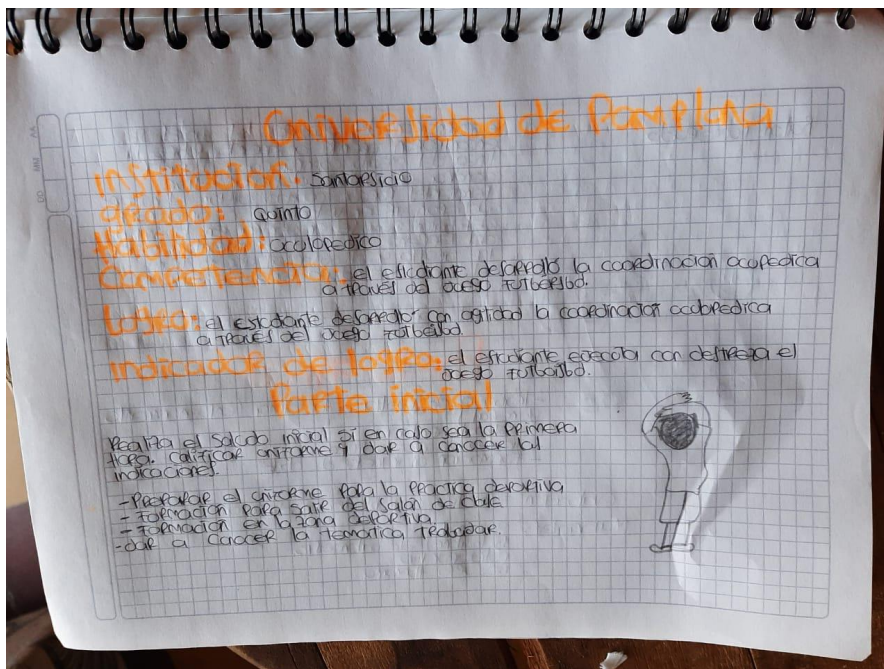 Universidad de Pamplona
Institución: Santapsicio
grado: Quinto
Habilidad: oculopedico
Competencia: el estudiante desarrolló la coordinación ocupedica
a través del juego futbeisbol.
Logro: el estudiante desarrolló con agilidad la coordinación oculopedica
a través del juego futbeisbol
Indicador de logro: el estudiante ejecuta con destreza el
juego futbeisbol.
Parte inicial
Realiza el saludo inicial si en caso sea la primera
hora. Calificar uniforme y dar a conocer las
indicaciones.
- Preparar el uniforme para la practica deportiva
- Formación para salir del salón de clase
- Formación en la zona deportiva.
- dar a conocer la temática trabajar.